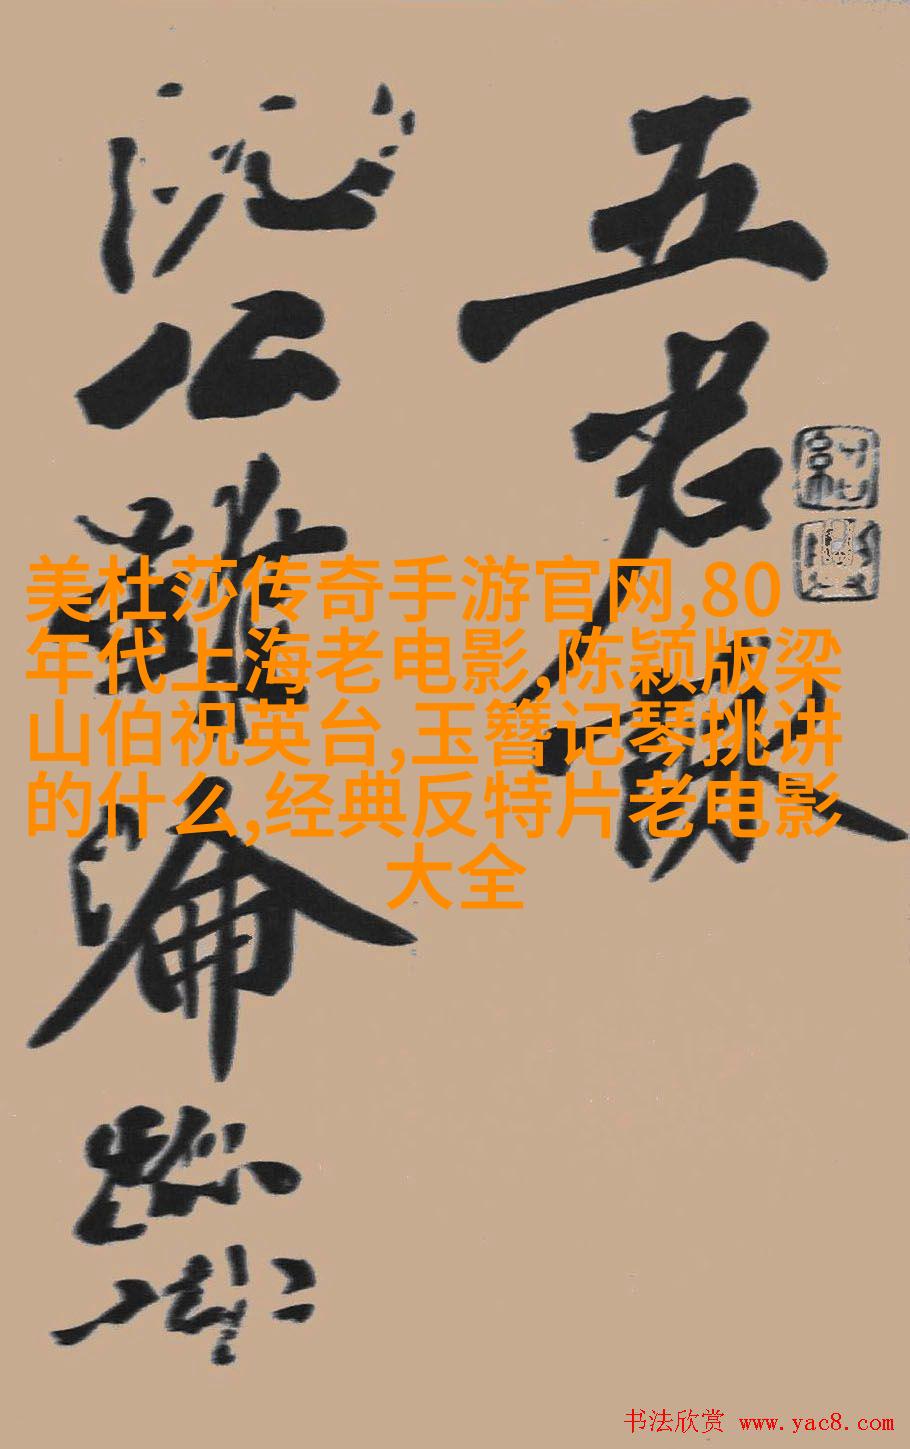 五君詠
阮公雖淪跡
美杜莎传奇手游官网,80
年代上海老电影,陈颖版梁
山伯祝英台,玉簪记琴挑讲
的什么,经典反特片老电影
大全
书法欣赏 www.yac8.com